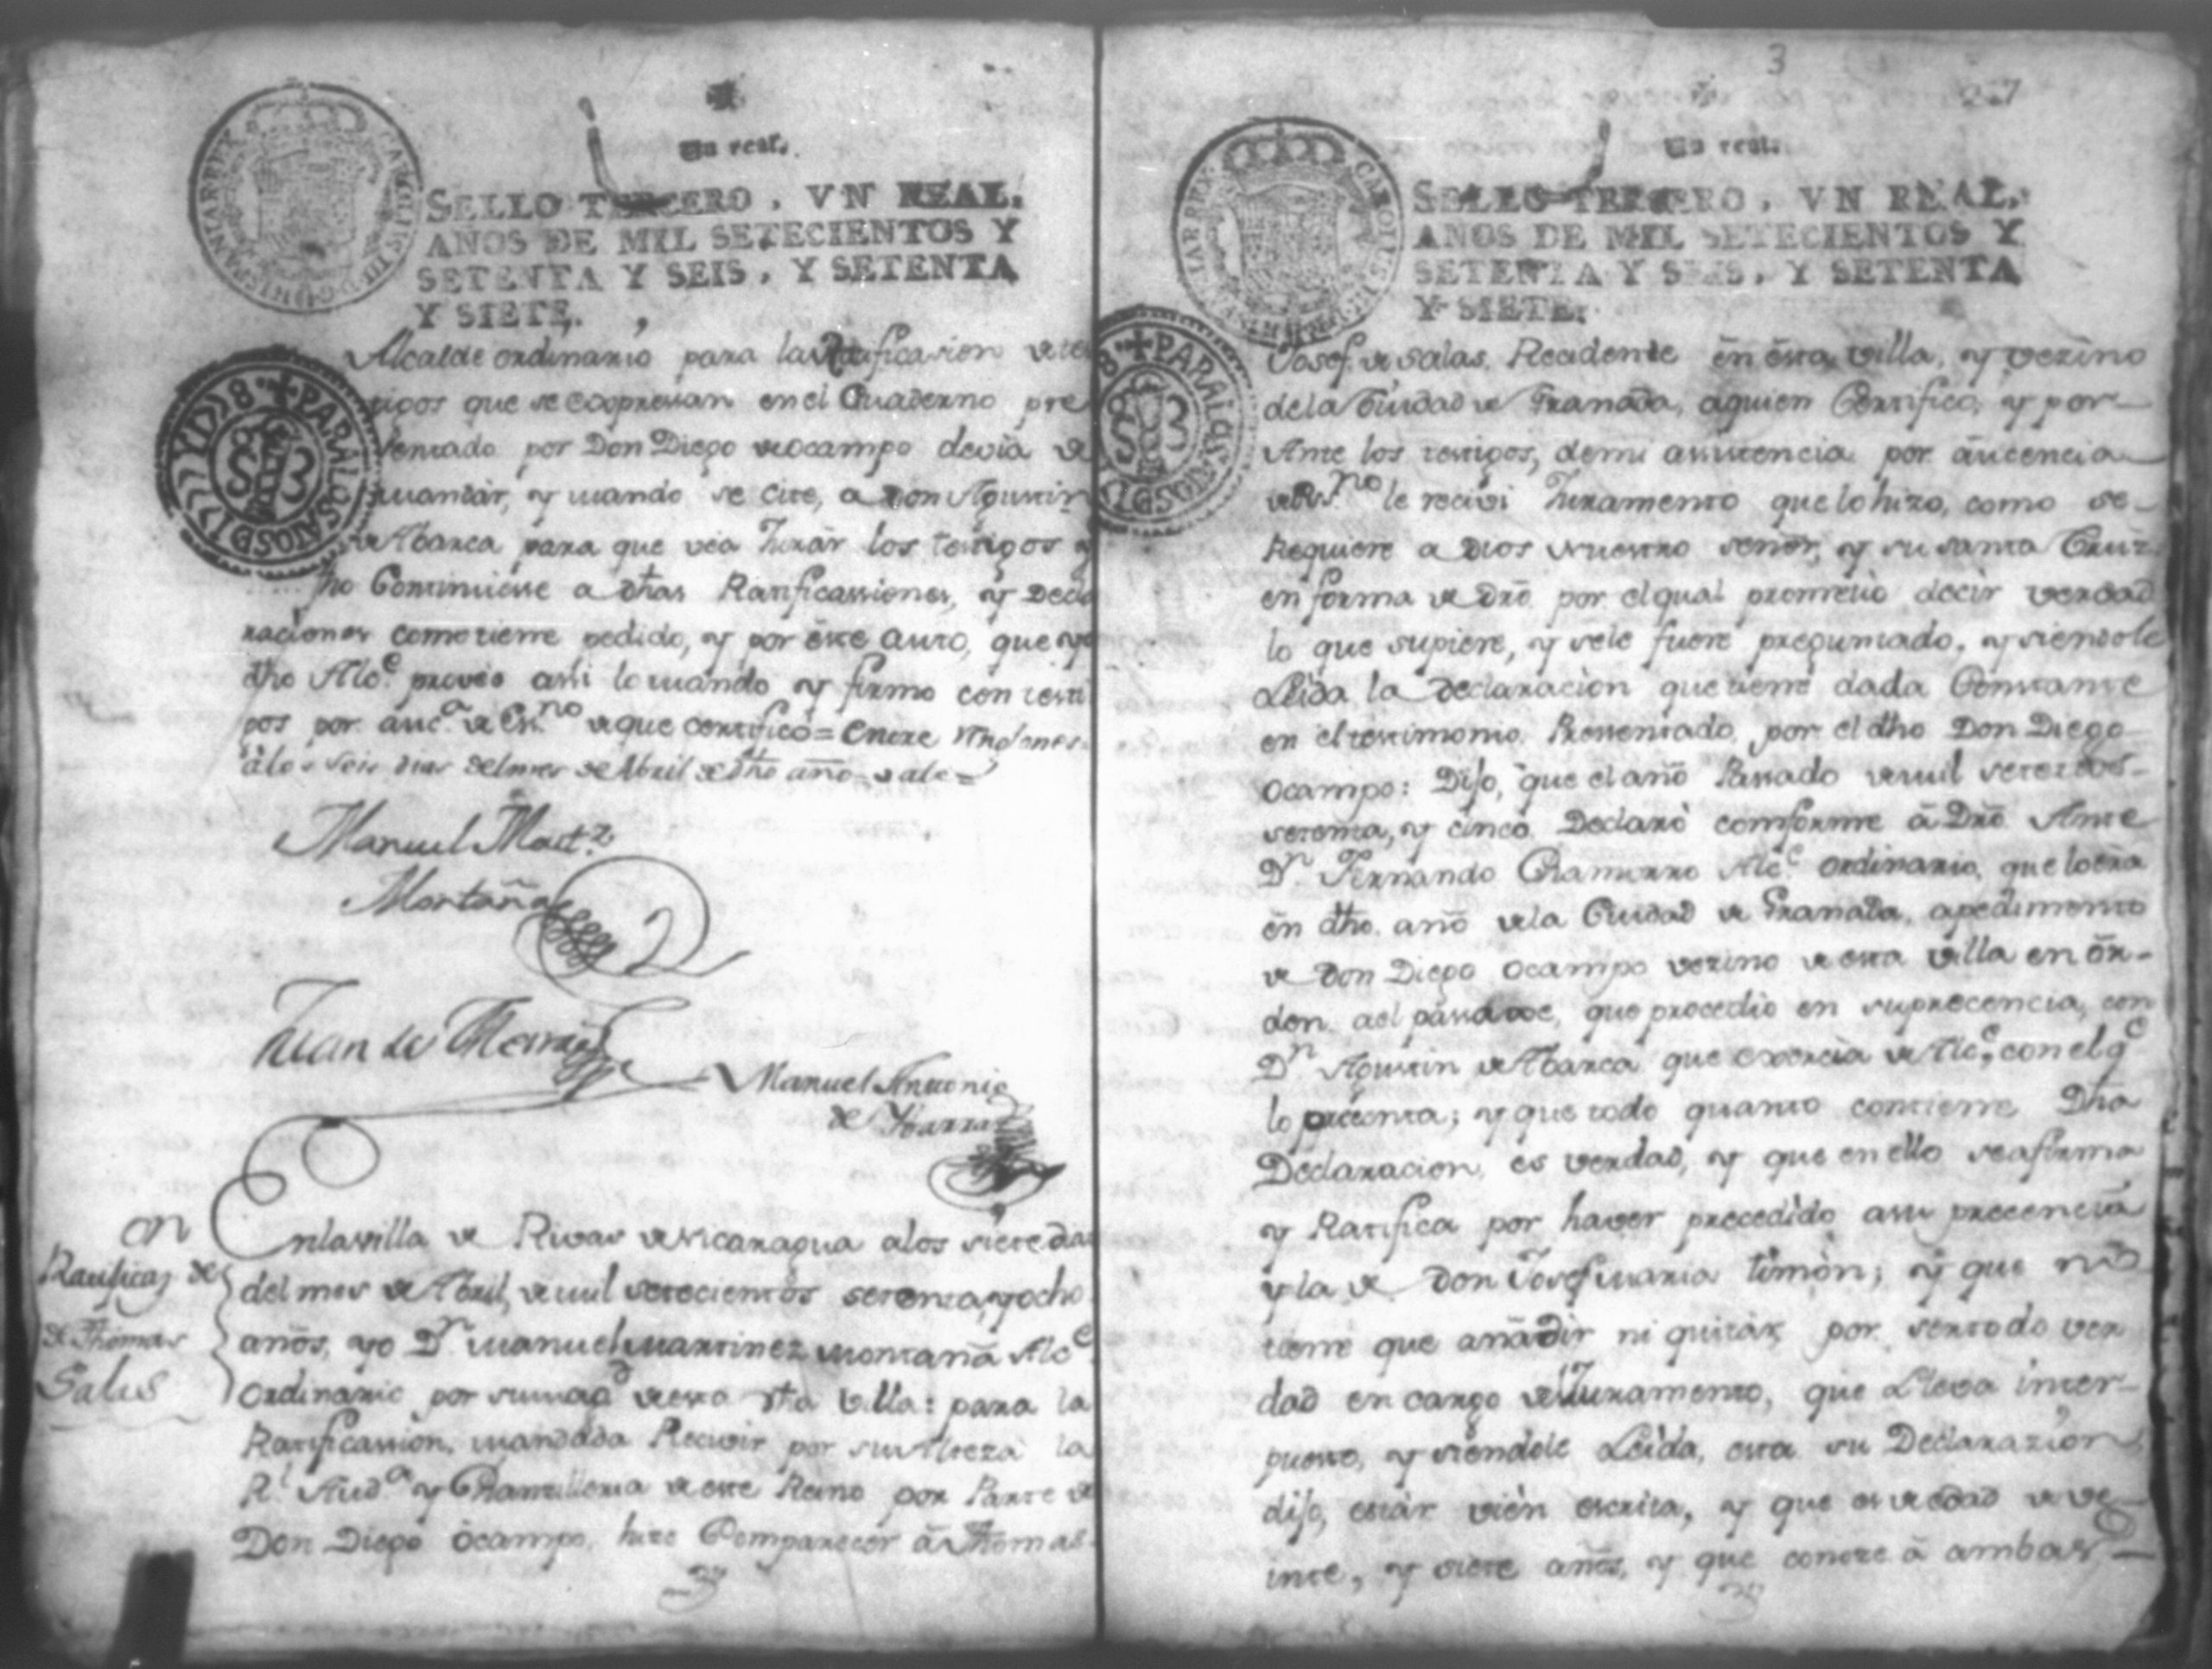 Un real.
SELLO TERCERO, VN REAL,
AÑOS DE MIL SETECIENTOS Y
SETENTA Y SEIS, Y SETENTA
Y SIETE.
CAROLUS III D G HISPANIAR REX
PARA LOS AÑOS D 1777 Y D 78
Alcalde ordinario para la Ratificasion de tes
tigos que se expressan en el Quaderno pre
sentado por Don Diego de Ocampo devia de
mandar, y mando se cite, a Don Agustin
de Abarca para que vea Jurar los testigos y
ho Continuese a dhas Ratificassiones, y Decla
raciones como tiene pedido, y por este auto, que yo
dho Alce. proveo assi lo mando y firmo con testi
gos por auca. de Esno. de que certifico = Entre Renglones
a los seis dias del mes de Abril de dho año = vale =
Manuel Martz
Montaña
Juan de
Manuel Antonio
de Ybarra
on
Ratificaz. de
de Thomas
Salas
En la villa de Rivas de Nicaragua a los siete dias
del mes de Abril, de mil setecientos setenta, y ocho
años, yo Dn. Manuel Martinez Montaña Alce.
Ordinario por su magd. de esta dha Villa: para la
Ratificassion, mandada Recivir por su Alteza la
Rl. Auda. y Chansilleria de este Reino por Parte de
Don Diego Ocampo, hize Comparecer â Thomas
3
267
Un real.
SELLO TERCERO, VN REAL,
AÑOS DE MIL SETECIENTOS Y
SETENTA Y SEIS, Y SETENTA
Y SIETE.
CAROLUS III D G HISPANIAR REX
PARA LOS AÑOS D 1777 Y D 78
Josef de Salas, Recidente ên êsta villa, y vezino
de la Ciudad de Granada, aquien Certifico, y por
Ante los testigos, de mi assistencia por aucencia
de Esno. le recivi Juramento que lo hizo, como se
Requiere a Dios nuestro señor, y su santa Cruz
en forma de dro por el qual prometio decir verdad
lo que supiere, y se le fuere preguntado, y siendole
Leida la declaracion que tiene dada Constante
en el testimonio Pressentado por el dho Don Diego
Ocampo: Dijo, que el año Passado de mil setezos.
setenta, y cinco Declaro comforme â Dro Ante
Dn. Fernando Chamorro Alce. ordinario, que lo era
ên dho. año de la Ciudad de Granada, a pedimento
de Don Diego Ocampo vezino de esta villa en ôr-
den, ael passaxe, que procedio en su precencia, con
Dn. Agustin de Abarca que exercia de Alce. con el qe.
lo precenta; y que todo quanto contiene Dha
Declaracion, es verdad, y que en ello se afirma
y Ratifica por haver precedido a su precencia
y la de Don Josef Maria Simon; y que no
tiene que añadir ni quitar, por ser todo ver
dad en cargo del Juramento, que Lleva inter-
puesto, y siendole Leida, esta su Declarazion
dijo, estar vien escrita, y que es de edad de ve
inte, y siete años, y que conoze â ambas